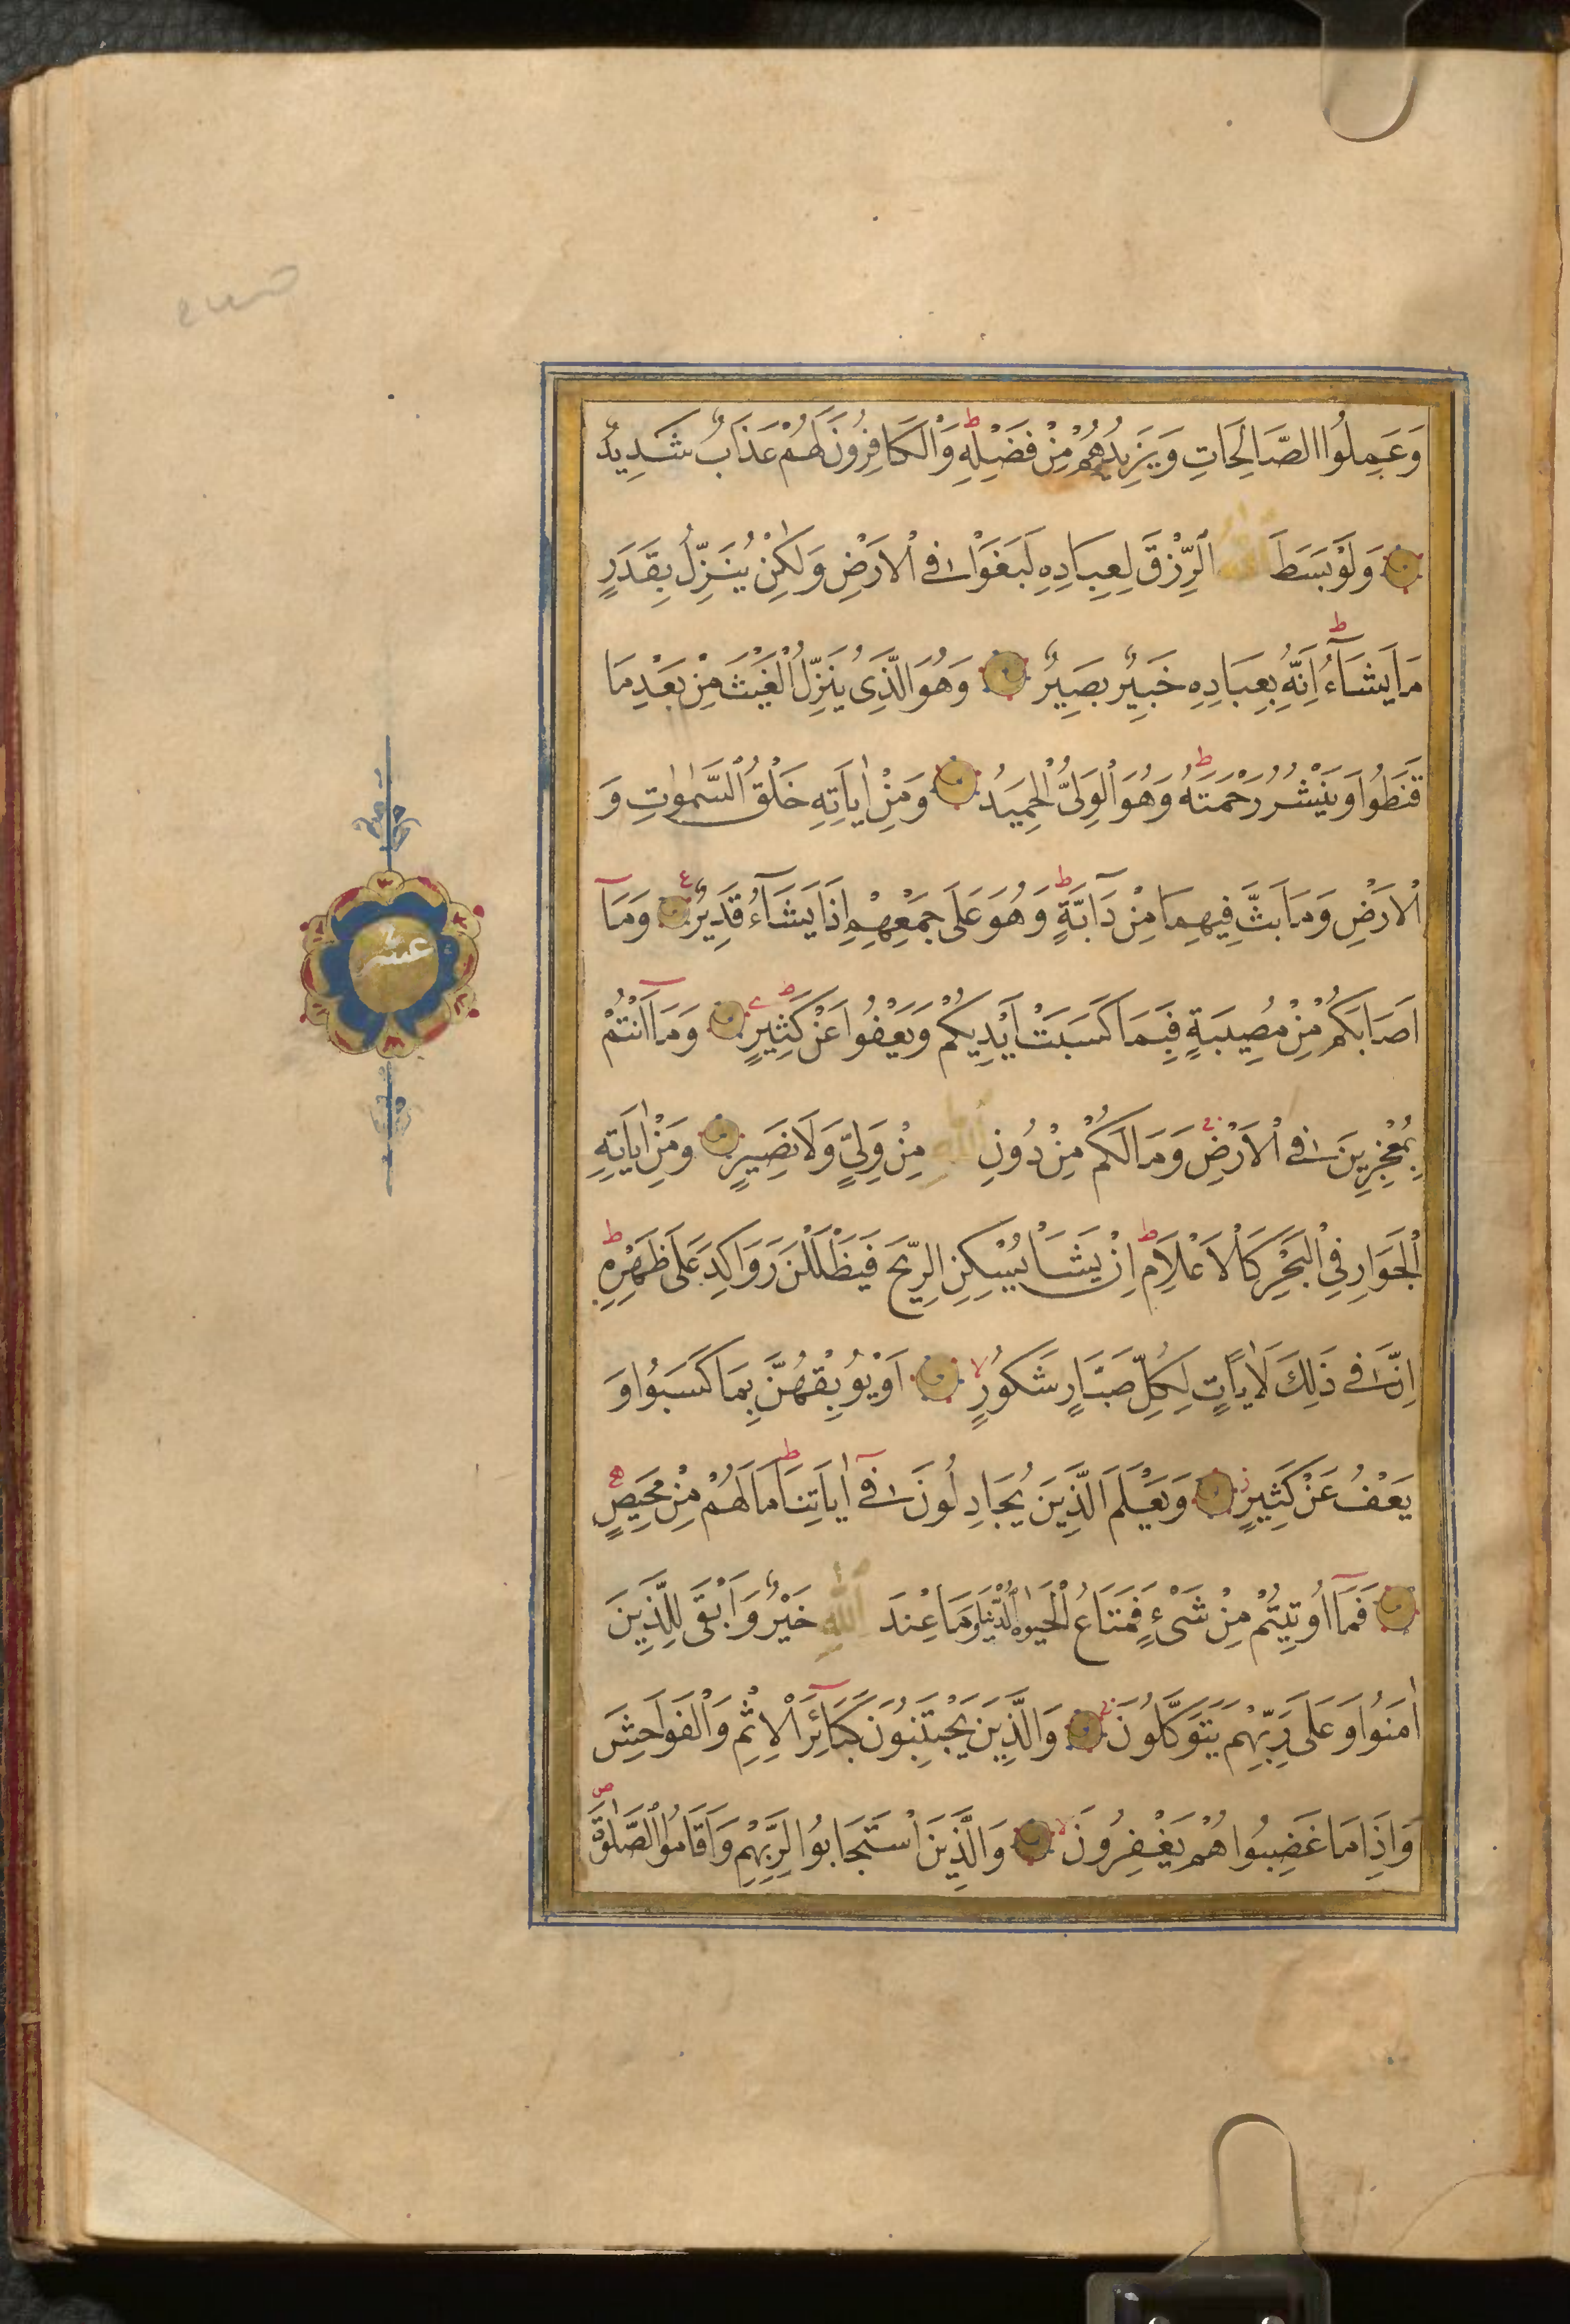 وَعَمِلُوا الصَّالِحَاتِ وَيَزِيدُهُمْ مِنْ فَضْلِهِ ط وَالْكَافِرُونَ لَهُمْ عَذَابٌ شَدِيدٌ
وَلَوْ بَسَطَ اللهُ الرِّزْقَ لِعِبَادِهِ لَبَغَوْا فِي الْاَرْضِ وَلٰكِنْ يُنَزِّلُ بِقَدَرٍ
مَا يَشَآءُ ط اِنَّهُ بِعِبَادِهِ خَبِيرٌ بَصِيرٌ وَهُوَ الَّذِى يُنَزِّلُ الْغَيْثَ مِنْ بَعْدِ مَا
قَنَطُوا وَيَنْشُرُ رَحْمَتَهُ ط وَهُوَ الْوَلِىُّ الْحَمِيدُ وَمِنْ اٰيَاتِهِ خَلْقُ السَّمٰوٰتِ وَ
الْاَرْضِ وَمَا بَثَّ فِيهِمَا مِنْ دَآبَّةٍ ط وَهُوَ عَلَى جَمْعِهِمْ اِذَا يَشَآءُ قَدِيرٌ ع وَمَآ
اَصَابَكُمْ مِنْ مُصِيبَةٍ فَبِمَا كَسَبَتْ اَيْدِيكُمْ وَيَعْفُوا عَنْ كَثِيرٍ ط وَمَآ اَنْتُمْ
بِمُعْجِزِينَ فِي الْاَرْضِ وَمَا لَكُمْ مِنْ دُونِ اللهِ مِنْ وَلِىٍّ وَلَا نَصِيرٍ وَمِنْ اٰيَاتِهِ
الْجَوَارِ فِي الْبَحْرِ كَالْاَعْلَامِ ط اِنْ يَشَاْ يُسْكِنِ الرِّيحَ فَيَظْلَلْنَ رَوَاكِدَ عَلَى ظَهْرِهِ ط
اِنَّ فِي ذَلِكَ لَاٰيَاتٍ لِكُلِّ صَبَّارٍ شَكُورٍ لا اَوْ يُوبِقْهُنَّ بِمَا كَسَبُوا وَ
يَعْفُ عَنْ كَثِيرٍ ز وَيَعْلَمَ الَّذِينَ يُجَادِلُونَ فِىٓ اٰيَاتِنَا ط مَا لَهُمْ مِنْ مَحِيصٍ
فَمَآ اُوتِيتُمْ مِنْ شَىْءٍ فَمَتَاعُ الْحَيٰوةِ الدُّنْيَا وَمَا عِنْدَ اللهِ خَيْرٌ وَاَبْقَى لِلَّذِينَ
اٰمَنُوا وَعَلَى رَبِّهِمْ يَتَوَكَّلُونَ ج وَالَّذِينَ يَجْتَنِبُونَ كَبَآئِرَ الْاِثْمِ وَالْفَوَاحِشَ
وَاِذَا مَا غَضِبُوا هُمْ يَغْفِرُونَ لا وَالَّذِينَ اسْتَجَابُوا لِرَبِّهِمْ وَاَقَامُوا الصَّلٰوةَ ص
عشر